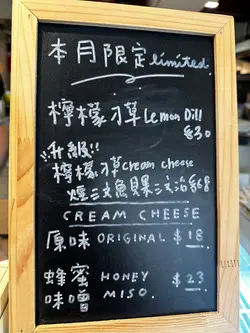 本月限定 limited.
檸檬刁草 Lemon Dill
$30
升級!!
檸檬刁草cream cheese
煙三文魚貝果三文治 $68
CREAM CHEESE
原味 ORIGINAL $18
蜂蜜 HONEY $23
味噌 MISO.